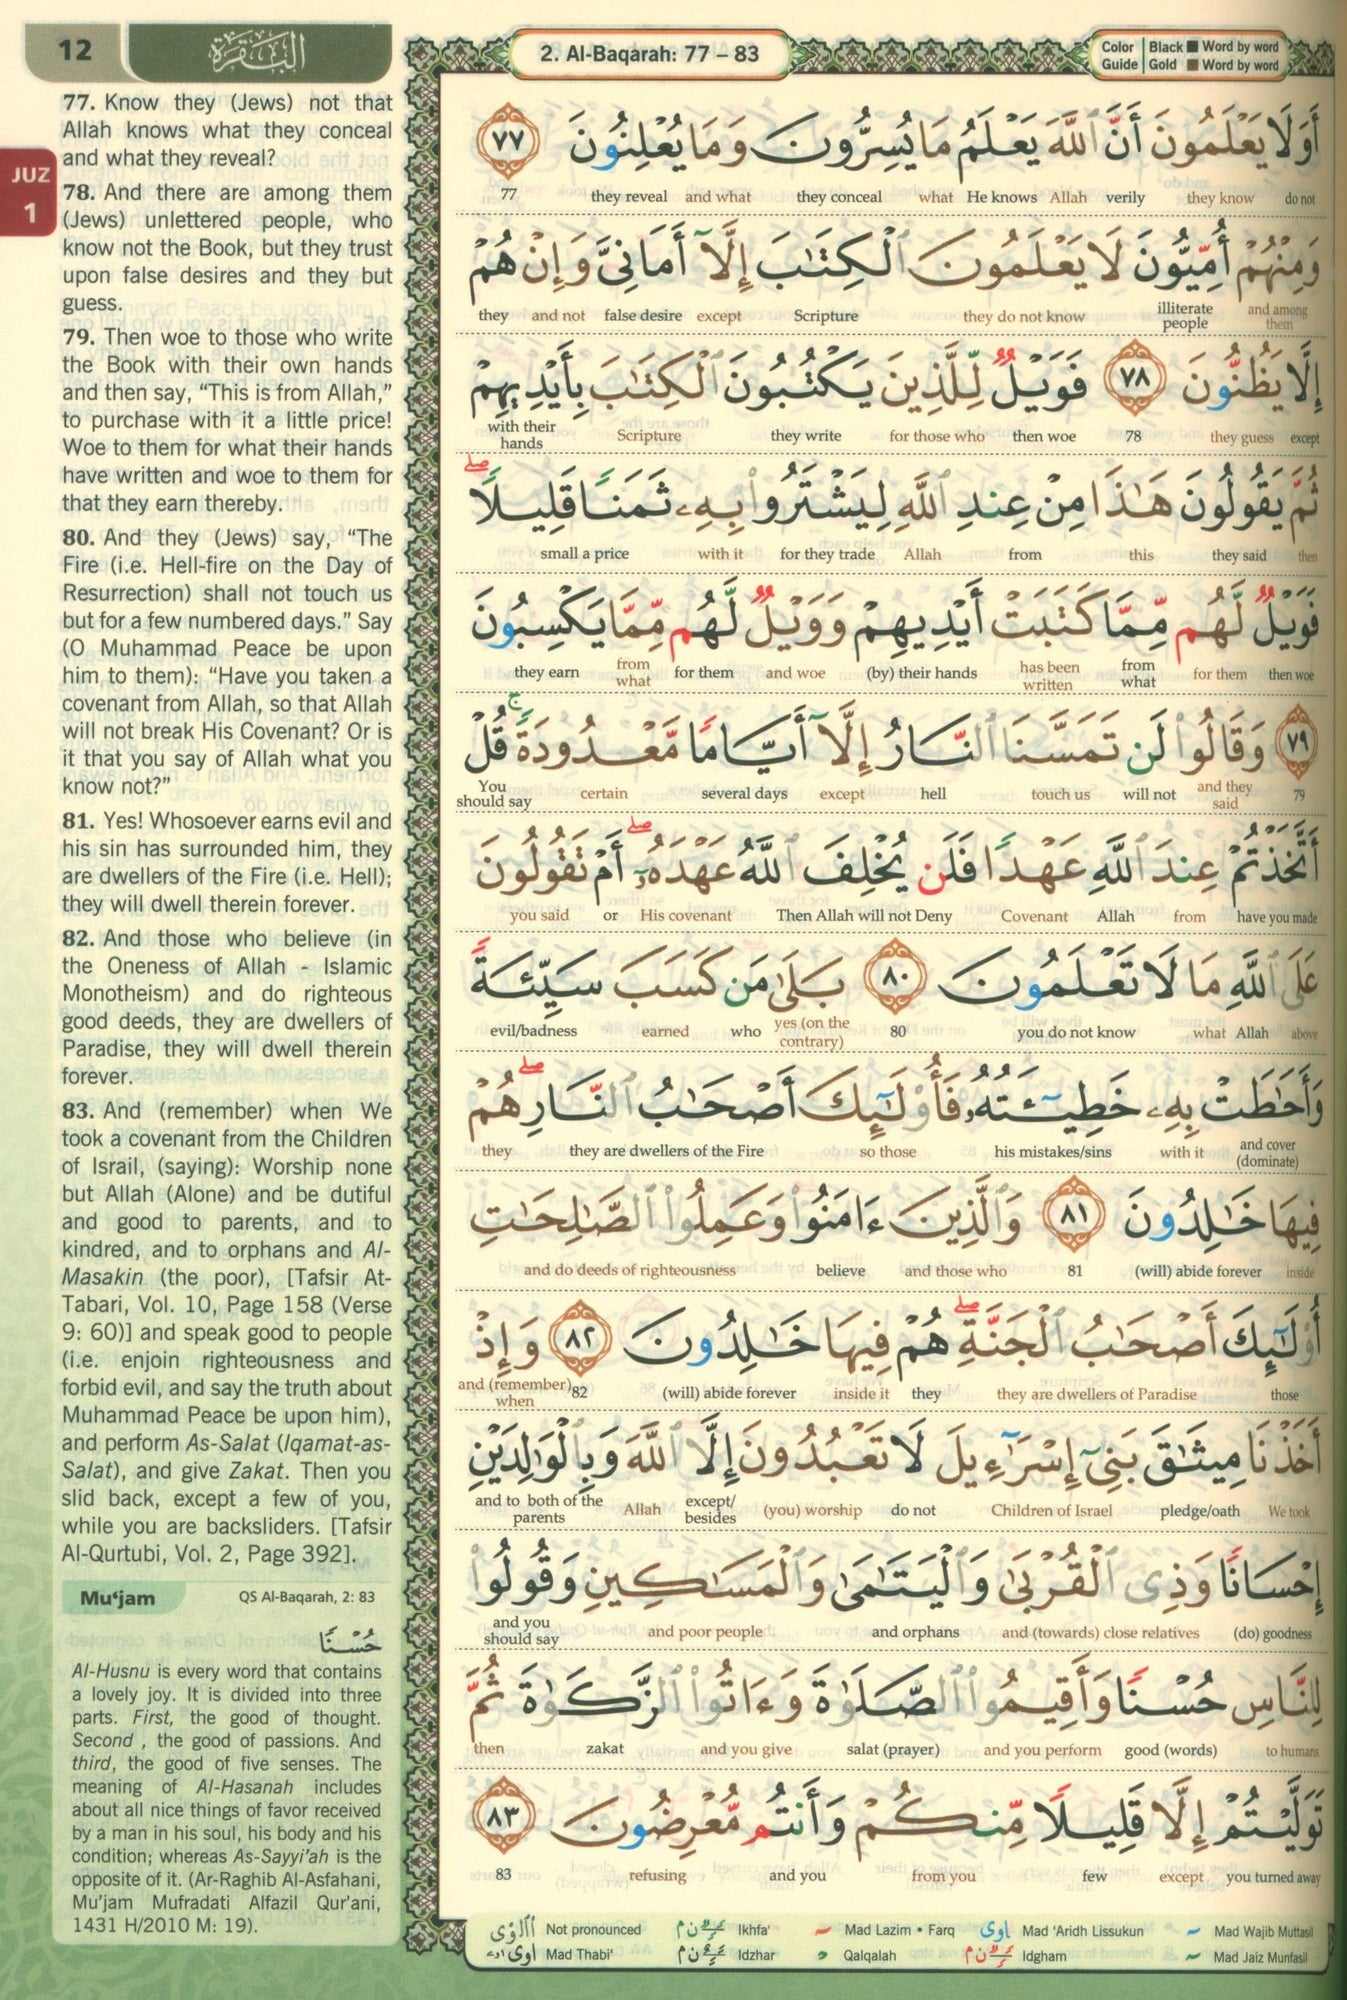 12
البقرة
2. Al-Baqarah: 77 – 83
Color Guide
Black Word by word
Gold Word by word
JUZ
1
77. Know they (Jews) not that
Allah knows what they conceal
and what they reveal?
78. And there are among them
(Jews) unlettered people, who
know not the Book, but they trust
upon false desires and they but
guess.
79. Then woe to those who write
the Book with their own hands
and then say, “This is from Allah,”
to purchase with it a little price!
Woe to them for what their hands
have written and woe to them for
that they earn thereby.
80. And they (Jews) say, “The
Fire (i.e. Hell-fire on the Day of
Resurrection) shall not touch us
but for a few numbered days.” Say
(O Muhammad Peace be upon
him to them): “Have you taken a
covenant from Allah, so that Allah
will not break His Covenant? Or is
it that you say of Allah what you
know not?”
81. Yes! Whosoever earns evil and
his sin has surrounded him, they
are dwellers of the Fire (i.e. Hell);
they will dwell therein forever.
82. And those who believe (in
the Oneness of Allah - Islamic
Monotheism) and do righteous
good deeds, they are dwellers of
Paradise, they will dwell therein
forever.
83. And (remember) when We
took a covenant from the Children
of Israil, (saying): Worship none
but Allah (Alone) and be dutiful
and good to parents, and to
kindred, and to orphans and Al-
Masakin (the poor), [Tafsir At-
Tabari, Vol. 10, Page 158 (Verse
9: 60)] and speak good to people
(i.e. enjoin righteousness and
forbid evil, and say the truth about
Muhammad Peace be upon him),
and perform As-Salat (Iqamat-as-
Salat), and give Zakat. Then you
slid back, except a few of you,
while you are backsliders. [Tafsir
Al-Qurtubi, Vol. 2, Page 392].
Mu‘jam QS Al-Baqarah, 2: 83
حُسْنًا
Al-Husnu is every word that contains
a lovely joy. It is divided into three
parts. First, the good of thought.
Second , the good of passions. And
third, the good of five senses. The
meaning of Al-Hasanah includes
about all nice things of favor received
by a man in his soul, his body and his
condition; whereas As-Sayyi’ah is the
opposite of it. (Ar-Raghib Al-Asfahani,
Mu’jam Mufradati Alfazil Qur’ani,
1431 H/2010 M: 19).
أَوَلَا يَعْلَمُونَ أَنَّ ٱللَّهَ يَعْلَمُ مَا يُسِرُّونَ وَمَا يُعْلِنُونَ ٧٧
do not they know verily Allah He knows what they conceal and what they reveal 77
وَمِنْهُمْ أُمِّيُّونَ لَا يَعْلَمُونَ ٱلْكِتَٰبَ إِلَّآ أَمَانِىَّ وَإِنْ هُمْ
and among them illiterate people they do not know Scripture except false desire and not they
إِلَّا يَظُنُّونَ ٧٨ فَوَيْلٌ لِّلَّذِينَ يَكْتُبُونَ ٱلْكِتَٰبَ بِأَيْدِيهِمْ
except they guess 78 then woe for those who they write Scripture with their hands
ثُمَّ يَقُولُونَ هَٰذَا مِنْ عِندِ ٱللَّهِ لِيَشْتَرُوا۟ بِهِۦ ثَمَنًا قَلِيلًا ۖ
then they said this from Allah for they trade with it small a price
فَوَيْلٌ لَّهُم مِّمَّا كَتَبَتْ أَيْدِيهِمْ وَوَيْلٌ لَّهُم مِّمَّا يَكْسِبُونَ
then woe for them from what has been written (by) their hands and woe for them from what they earn
٧٩ وَقَالُوا۟ لَن تَمَسَّنَا ٱلنَّارُ إِلَّآ أَيَّامًا مَّعْدُودَةً ۚ قُلْ
79 and they said will not touch us hell except several days certain You should say
أَتَّخَذْتُمْ عِندَ ٱللَّهِ عَهْدًا فَلَن يُخْلِفَ ٱللَّهُ عَهْدَهُۥٓ ۖ أَمْ تَقُولُونَ
have you made from Allah Covenant Then Allah will not Deny His covenant or you said
عَلَى ٱللَّهِ مَا لَا تَعْلَمُونَ ٨٠ بَلَىٰ مَن كَسَبَ سَيِّئَةً
above Allah what you do not know 80 yes (on the contrary) who earned evil/badness
وَأَحَٰطَتْ بِهِۦ خَطِيٓـَٔتُهُۥ فَأُو۟لَٰٓئِكَ أَصْحَٰبُ ٱلنَّارِ ۖ هُمْ
and cover (dominate) with it his mistakes/sins so those they are dwellers of the Fire they
فِيهَا خَٰلِدُونَ ٨١ وَٱلَّذِينَ ءَامَنُوا۟ وَعَمِلُوا۟ ٱلصَّٰلِحَٰتِ
inside (will) abide forever 81 and those who believe and do deeds of righteousness
أُو۟لَٰٓئِكَ أَصْحَٰبُ ٱلْجَنَّةِ ۖ هُمْ فِيهَا خَٰلِدُونَ ٨٢ وَإِذْ
those they are dwellers of Paradise they inside it (will) abide forever 82 and (remember) when
أَخَذْنَا مِيثَٰقَ بَنِىٓ إِسْرَٰٓءِيلَ لَا تَعْبُدُونَ إِلَّا ٱللَّهَ وَبِٱلْوَٰلِدَيْنِ
We took pledge/oath Children of Israel do not (you) worship except/ besides Allah and to both of the parents
إِحْسَانًا وَذِى ٱلْقُرْبَىٰ وَٱلْيَتَٰمَىٰ وَٱلْمَسَٰكِينِ وَقُولُوا۟
(do) goodness and (towards) close relatives and orphans and poor people and you should say
لِلنَّاسِ حُسْنًا وَأَقِيمُوا۟ ٱلصَّلَوٰةَ وَءَاتُوا۟ ٱلزَّكَوٰةَ ثُمَّ
to humans good (words) and you perform salat (prayer) and you give zakat then
تَوَلَّيْتُمْ إِلَّا قَلِيلًا مِّنكُمْ وَأَنتُم مُّعْرِضُونَ ٨٣
you turned away except few from you and you refusing 83
Not pronounced Ikhfa’ Mad Lazim • Farq Mad ‘Aridh Lissukun Mad Wajib Muttasil
Mad Thabi‘ Idzhar Qalqalah Idgham Mad Jaiz Munfasil